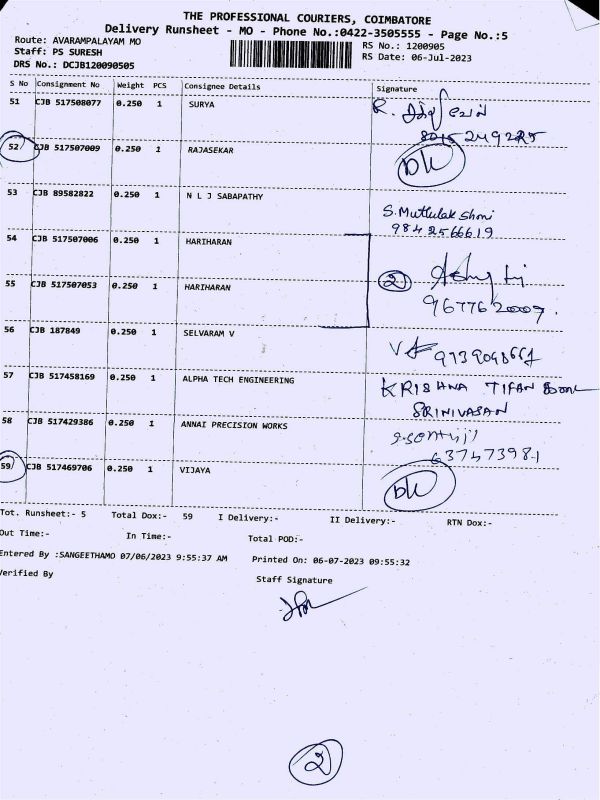 THE PROFESSIONAL COURIERS, COIMBATORE
Delivery Runsheet - MO - Phone No.:0422-3505555 - Page No.:5
Route: AVARAMPALAYAM MO RS No.: 1200905
Staff: PS SURESH RS Date: 06-Jul-2023
DRS No.: DCJB120090505
S No Consignment No Weight PCS Consignee Details Signature
51 CJB 517508077 0.250 1 SURYA R.
52 CJB 517507009 0.250 1 RAJASEKAR
53 CJB 89582822 0.250 1 N L J SABAPATHY
S.Mutlulakshmi
9842566619
54 CJB 517507006 0.250 1 HARIHARAN
2
55 CJB 517507053 0.250 1 HARIHARAN
9677620009.
56 CJB 187849 0.250 1 SELVARAM V
57 CJB 517458169 0.250 1 ALPHA TECH ENGINEERING KRISHNA TIFAN
SRINIVASAN
58 CJB 517429386 0.250 1 ANNAI PRECISION WORKS
59 CJB 517469706 0.250 1 VIJAYA
Tot. Runsheet:- 5 Total Dox:- 59 I Delivery:- II Delivery:- RTN Dox:-
Out Time:- In Time:- Total POD:-
Entered By :SANGEETHAMO 07/06/2023 9:55:37 AM Printed On: 06-07-2023 09:55:32
Verified By Staff Signature
2